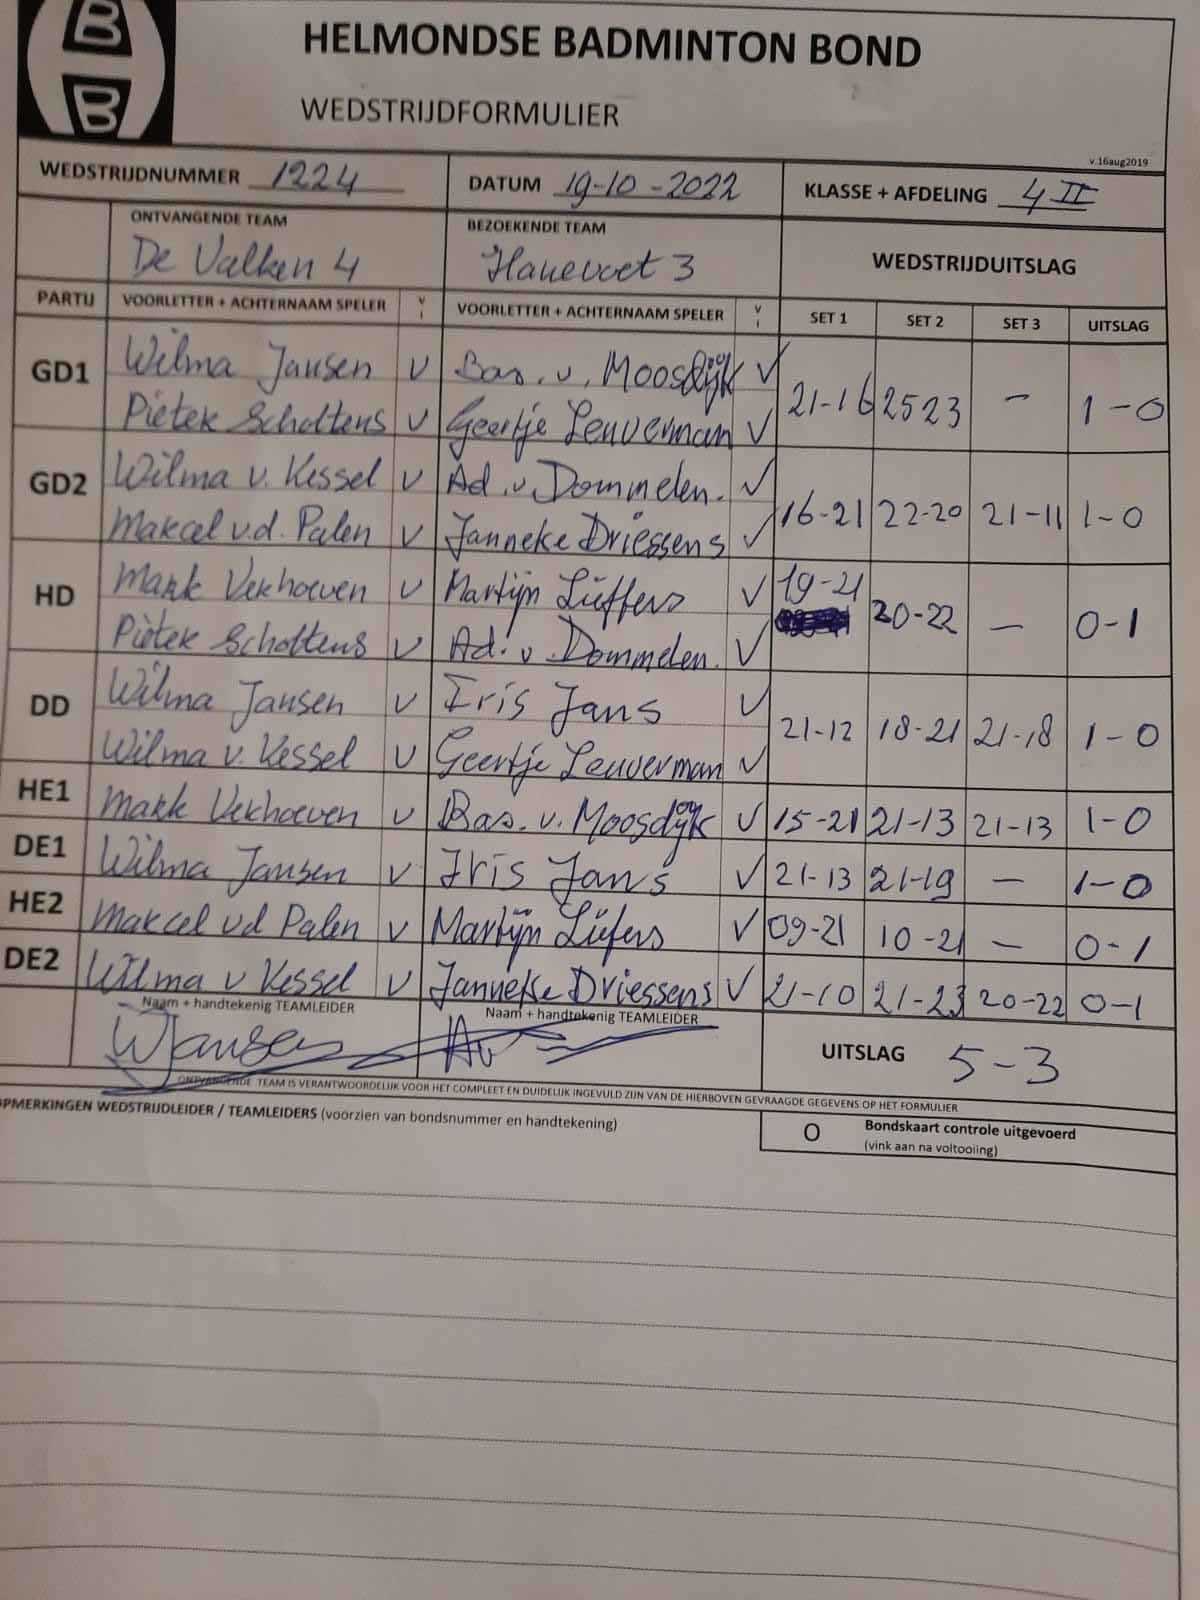 B
B
HELMONDSE BADMINTON BOND
WEDSTRIJDFORMULIER
v.16aug2019
WEDSTRIJDNUMMER 1224 DATUM 19-10-2022 KLASSE + AFDELING 4 II
ONTVANGENDE TEAM BEZOEKENDE TEAM
De Valken 4 Hanevoet 3 WEDSTRIJDUITSLAG
PARTIJ VOORLETTER + ACHTERNAAM SPELER V I VOORLETTER + ACHTERNAAM SPELER V I SET 1 SET 2 SET 3 UITSLAG
GD1 Wilma Jansen v Bas. v. Moosdijk v 21-16 25 23 - 1-0
Pieter Scholtens v Geertje Leuverman v
GD2 Wilma v. Kessel v Ad. v Dommelen. v 16-21 22-20 21-11 1-0
Marcel v.d. Palen v Janneke Driessens v
HD Mark Verhoeven v Martijn Lieffers v 19-21 20-22 - 0-1
Pieter Scholtens v Ad. v. Dommelen. v
DD Wilma Jansen v Iris Jans v 21-12 18-21 21-18 1-0
Wilma v. Kessel v Geertje Leuverman v
HE1 Mark Verhoeven v Bas. v. Moosdijk v 15-21 21-13 21-13 1-0
DE1 Wilma Jansen v Iris Jans v 21-13 21-19 - 1-0
HE2 Marcel vd Palen v Martijn Liefers v 09-21 10-21 - 0-1
DE2 Wilma v Kessel v Janneke Driessens v 21-10 21-23 20-22 0-1
Naam + handtekenig TEAMLEIDER Naam + handtekenig TEAMLEIDER
WJansen UITSLAG 5-3
ONTVANGENDE TEAM IS VERANTWOORDELIJK VOOR HET COMPLEET EN DUIDELIJK INGEVULD ZIJN VAN DE HIERBOVEN GEVRAAGDE GEGEVENS OP HET FORMULIER
OPMERKINGEN WEDSTRIJDLEIDER / TEAMLEIDERS (voorzien van bondsnummer en handtekening)
O Bondskaart controle uitgevoerd
(vink aan na voltooiing)